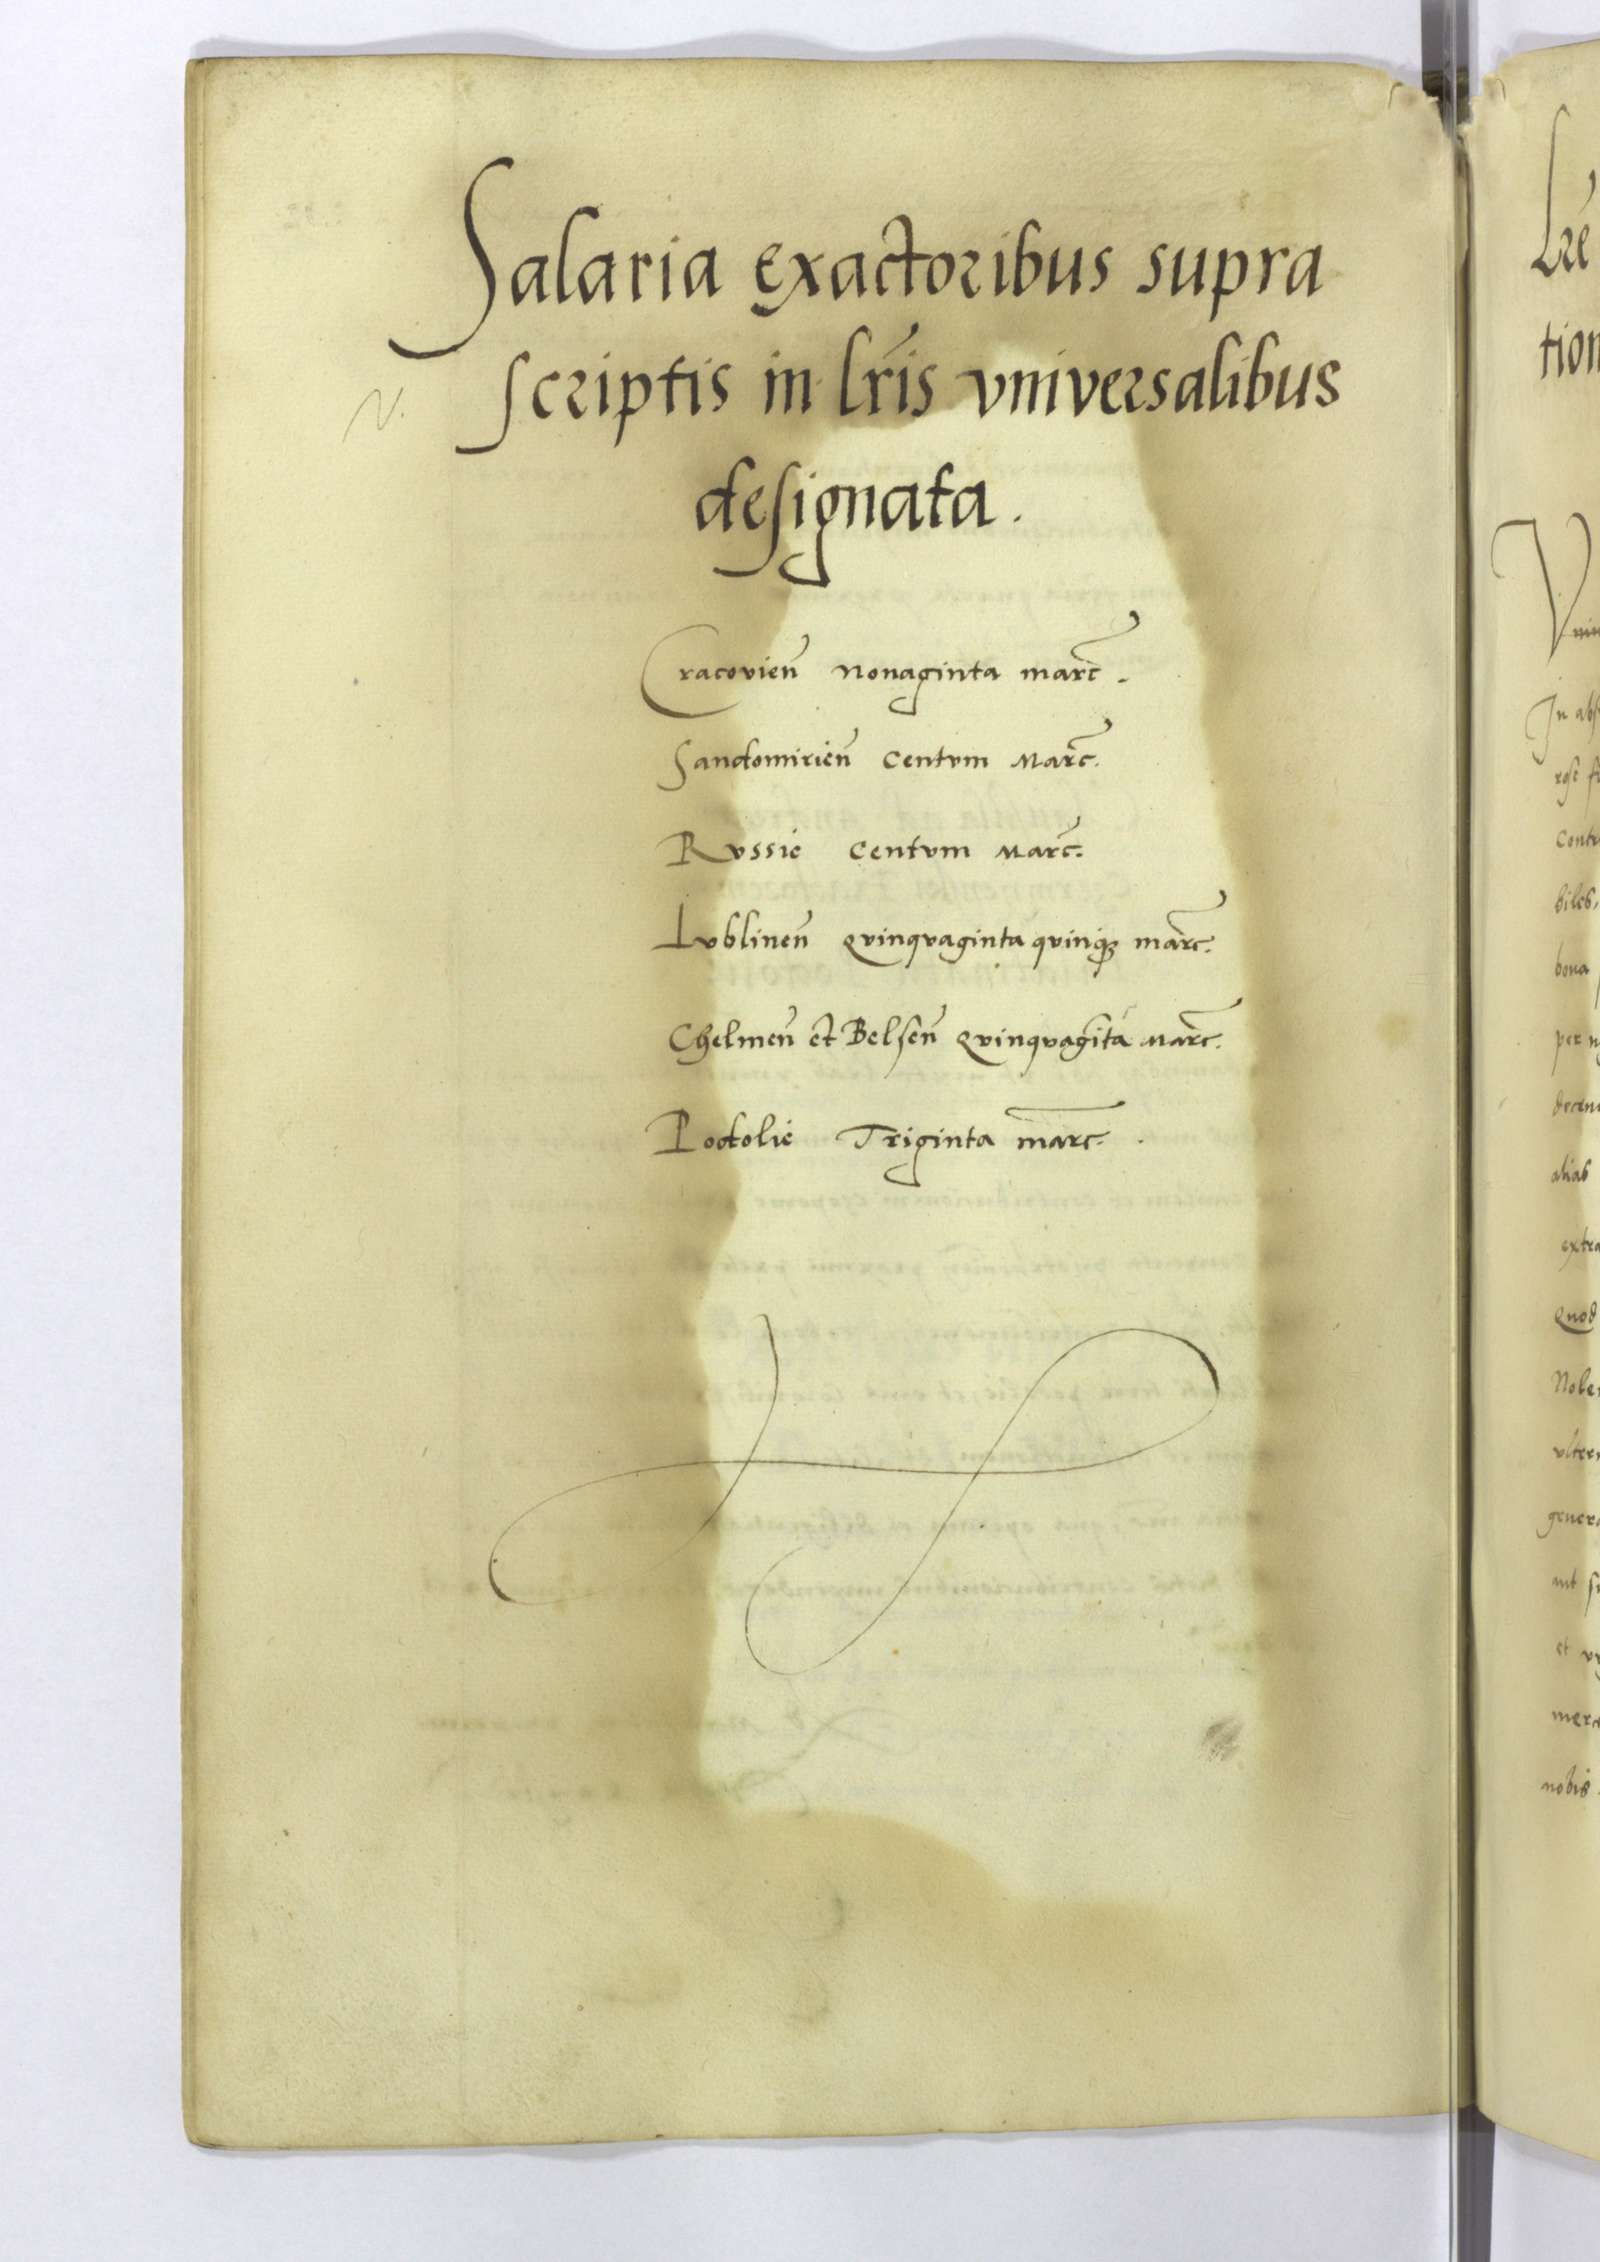 Salaria exactoribus supra
scriptis in lr̃is vniversalibus
N.
designata.
Cracovien̄ Nonaginta marc̄.
Sandomirien̄ Centvm Marc̄.
Rvssie Centvm Marc̄.
Lvblinen̄ Qvinqvaginta qvinq₃ marc̄.
Chelmen̄ et Belsen̄ Qvinqvagīta Marc̄.
Podolie Triginta marc̄.
Lr̄e
tion
V
In abs
Contr
biles,
bona
per
alias
extra
Quod
Nole
vlter
gener
aut
et
mer
nobis